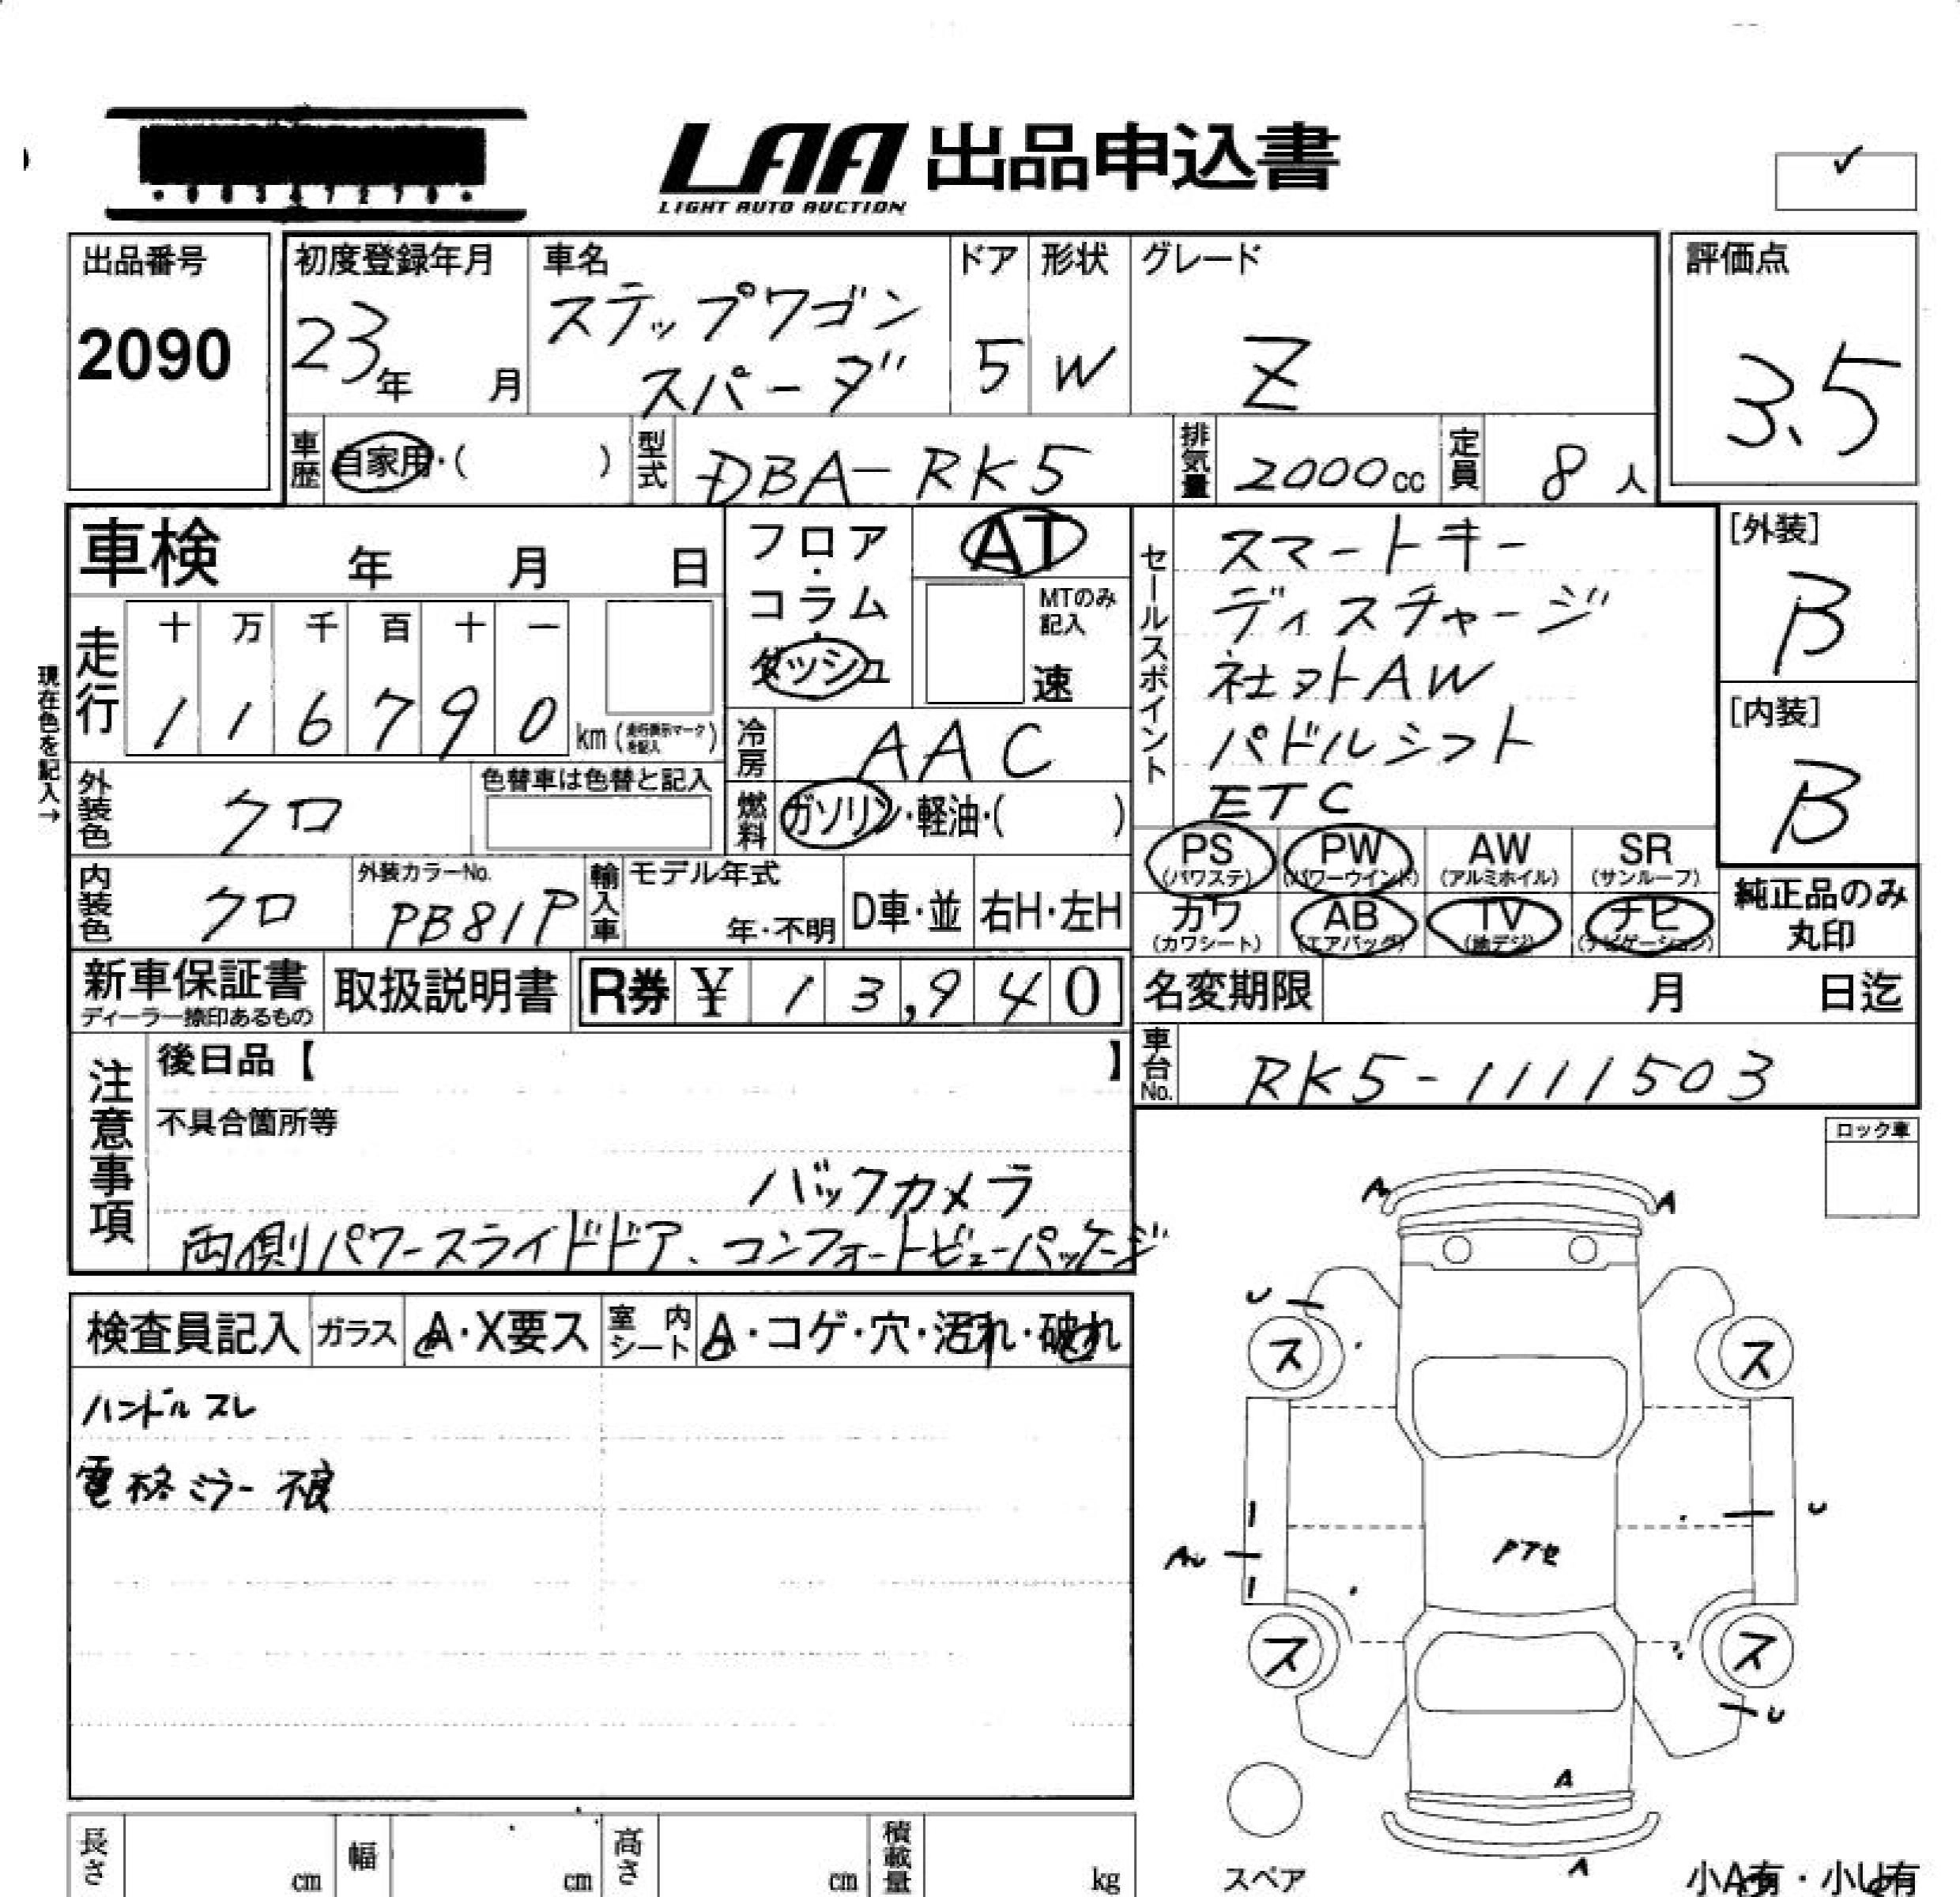 LAA 出品申込書
LIGHT AUTO AUCTION
✓
出品番号
2090
初度登録年月
23年 月
車名
ステップワゴン
スパーダ
ドア
5
形状
W
グレード
Z
評価点
3.5
車歴 自家用・( )
型式 DBA-RK5
排気量 2000cc
定員 8人
車検 年 月 日
走行
十 万 千 百 十 一
1 1 6 7 9 0 km (走行表示マークを記入)
現在色を記入→
外装色 クロ
色替車は色替と記入
内装色 クロ
外装カラーNo.
PB81P
フロア・コラム・ダッシュ
AT
MTのみ記入
速
冷房 AAC
燃料 ガソリン・軽油・( )
輸入車 モデル年式
年・不明
D車・並 右H・左H
セールスポイント
スマートキー
ディスチャージ
社外AW
パドルシフト
ETC
[外装]
B
[内装]
B
PS
(パワステ)
PW
(パワーウインド)
AW
(アルミホイル)
SR
(サンルーフ)
カワ
(カワシート)
AB
(エアバッグ)
TV
(地デジ)
ナビ
(ナビゲーション)
純正品のみ
丸印
新車保証書
ディーラー捺印あるもの
取扱説明書
R券 ¥ 13,940
名変期限 月 日迄
車台No. RK5-1111503
注意事項
後日品【 】
不具合箇所等
バックカメラ
両側パワースライドドア、コンフォートビューパッケージ
ロック車
検査員記入 ガラス A・X要ス 室内シート A・コゲ・穴・汚れ・破れ
ハンドルスレ
電格ミラー不良
A A
U
ス ス
U
AU
ス ス
U
A
A
スペア
小A有・小U有
長さ cm
幅 cm
高さ cm
積載量 kg